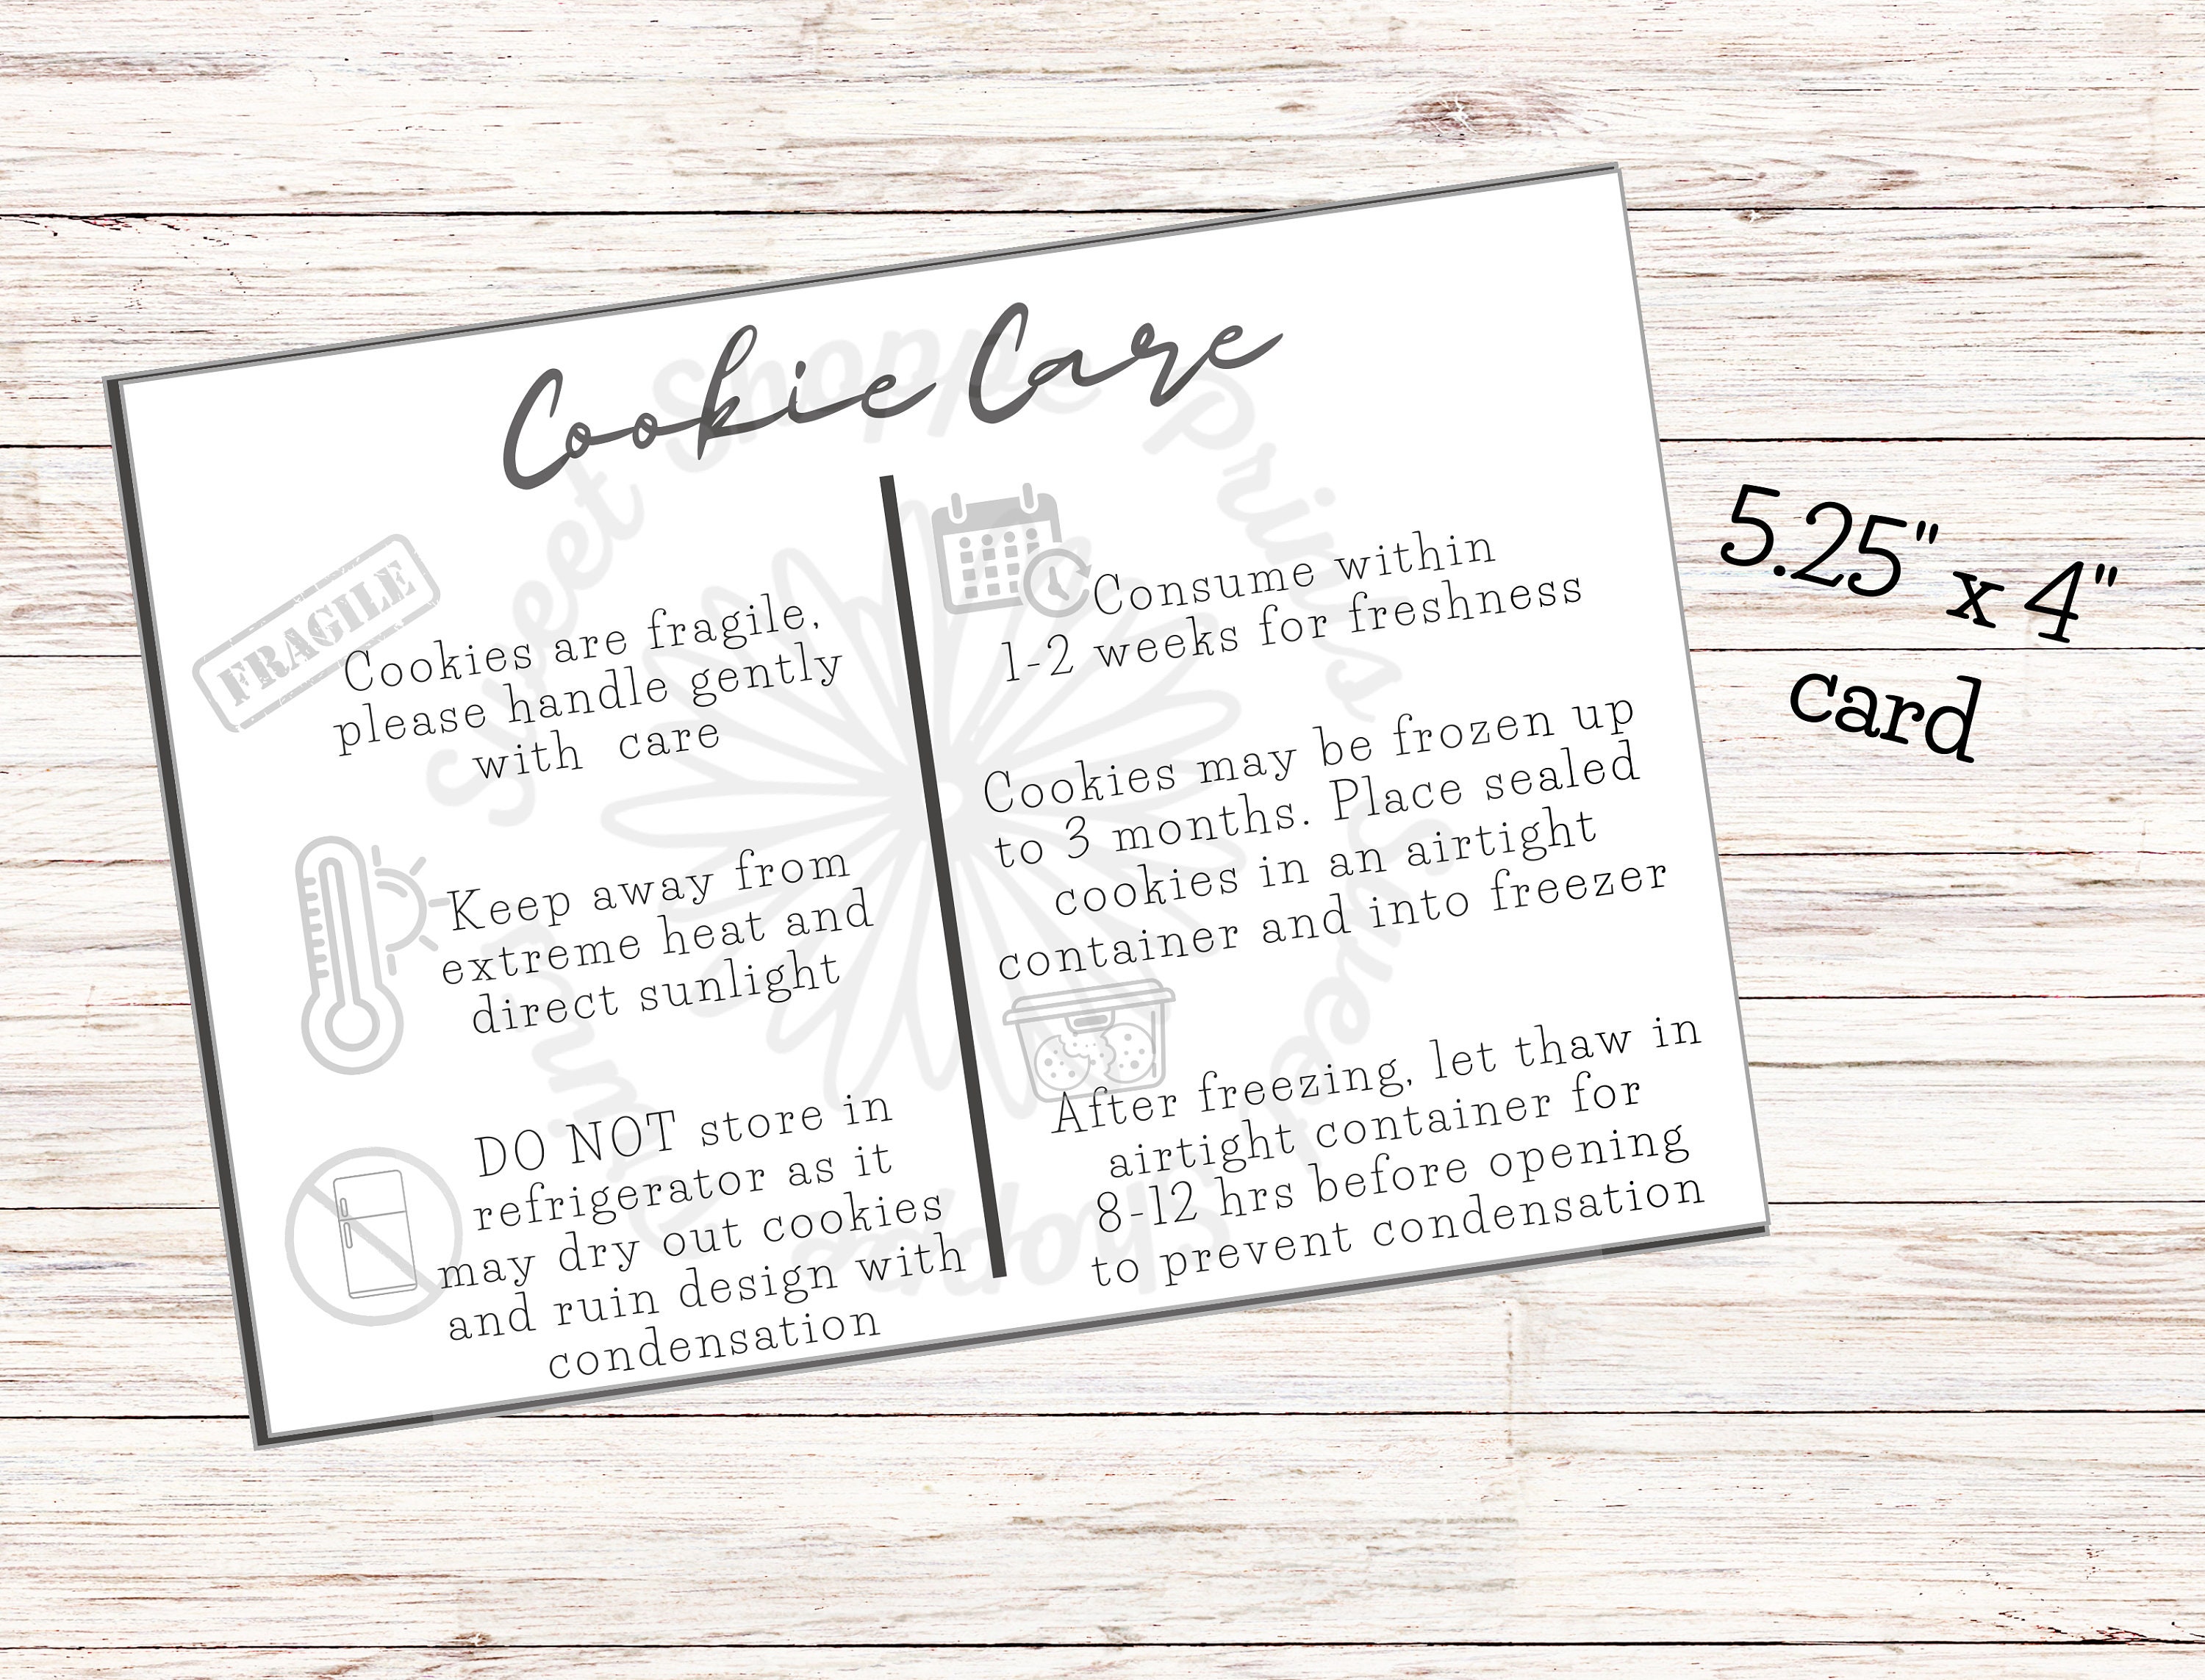 Cookie Care
FRAGILE
Cookies are fragile,
please handle gently
with care
Keep away from
extreme heat and
direct sunlight
DO NOT store in
refrigerator as it
may dry out cookies
and ruin design with
condensation
Consume within
1-2 weeks for freshness
Cookies may be frozen up
to 3 months. Place sealed
cookies in an airtight
container and into freezer
After freezing, let thaw in
airtight container for
8-12 hrs before opening
to prevent condensation
5.25" x 4"
card
Sweet Shoppe Prints
Sweet Shoppe Prints